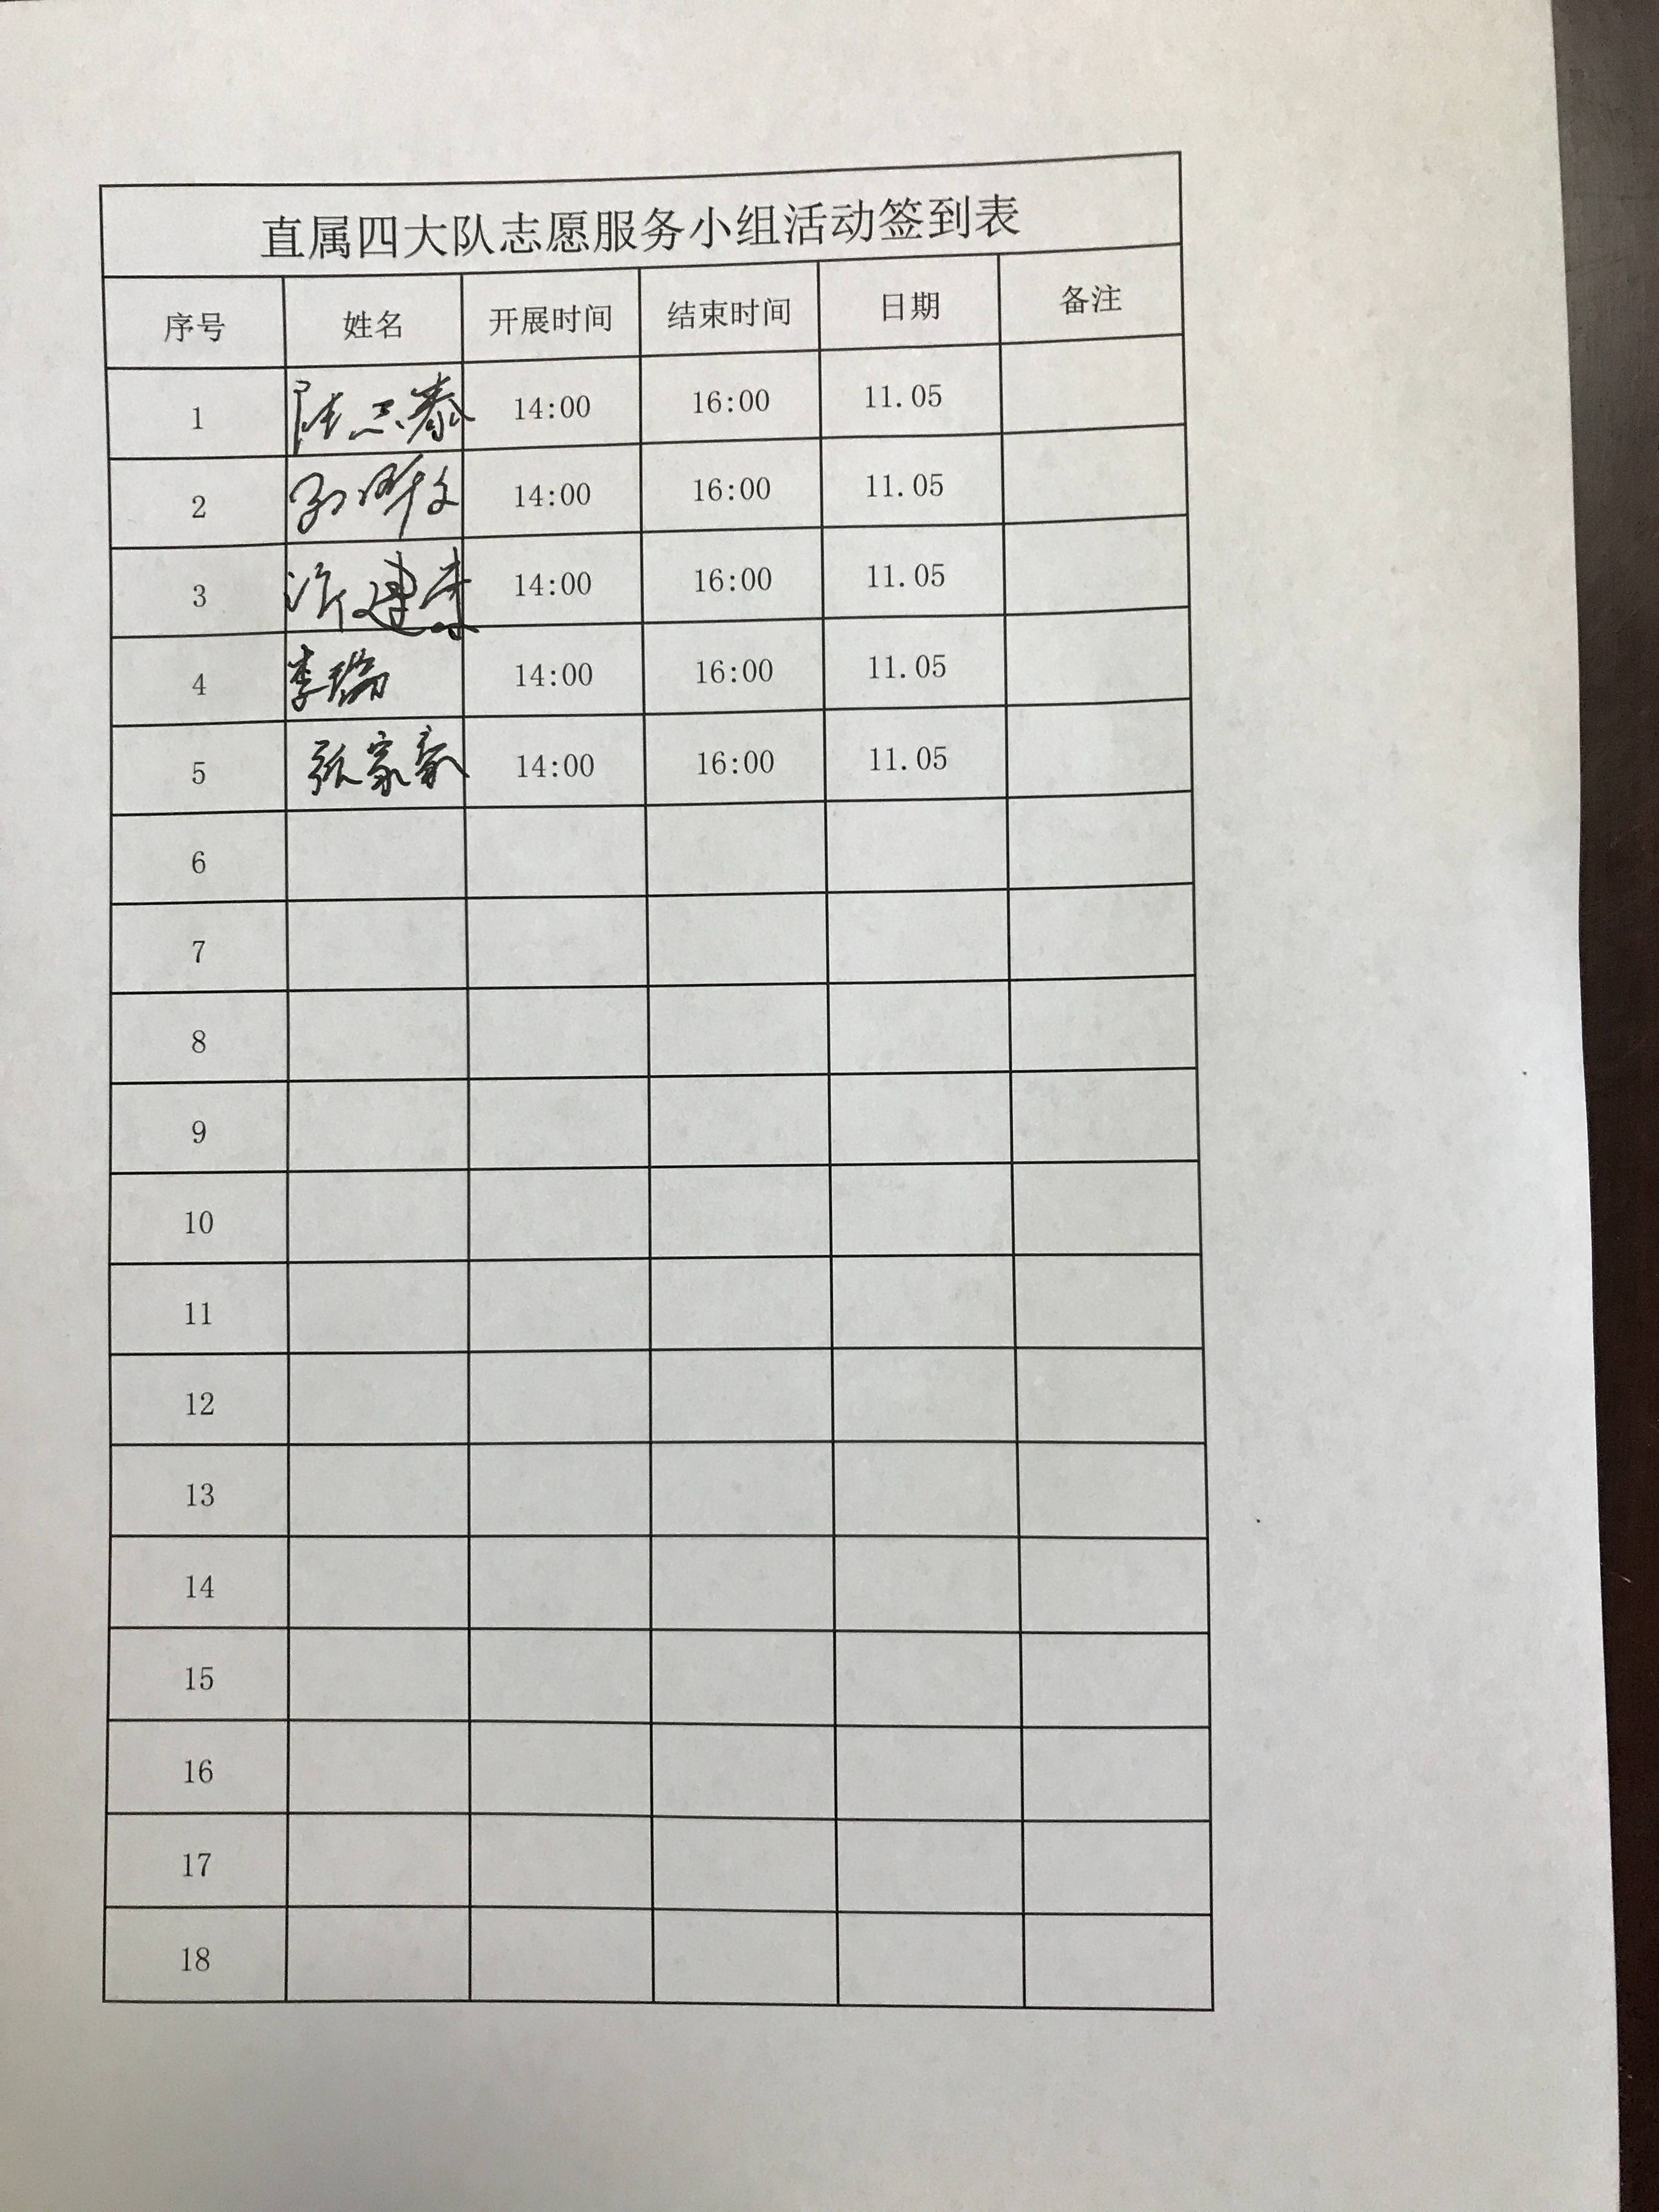 直属四大队志愿服务小组活动签到表
序号 姓名 开展时间 结束时间 日期 备注
1 14:00 16:00 11.05
2 14:00 16:00 11.05
3 建 14:00 16:00 11.05
4 李瑞 14:00 16:00 11.05
5 张家豪 14:00 16:00 11.05
6
7
8
9
10
11
12
13
14
15
16
17
18